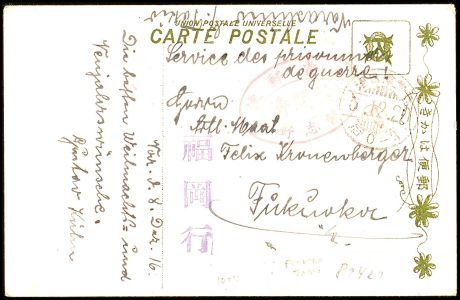 Narashino / Tokio
UNION POSTALE UNIVERSELLE
CARTE POSTALE
Service des prisonniers
de guerre!
Herrn
Felix Kronenberger
Fukuoka
福岡行
きかは便郵
Nar. d. 8. Dez. 16.
Die besten Weihnachts- und
Neujahrswünsche.
Gustav Kühn